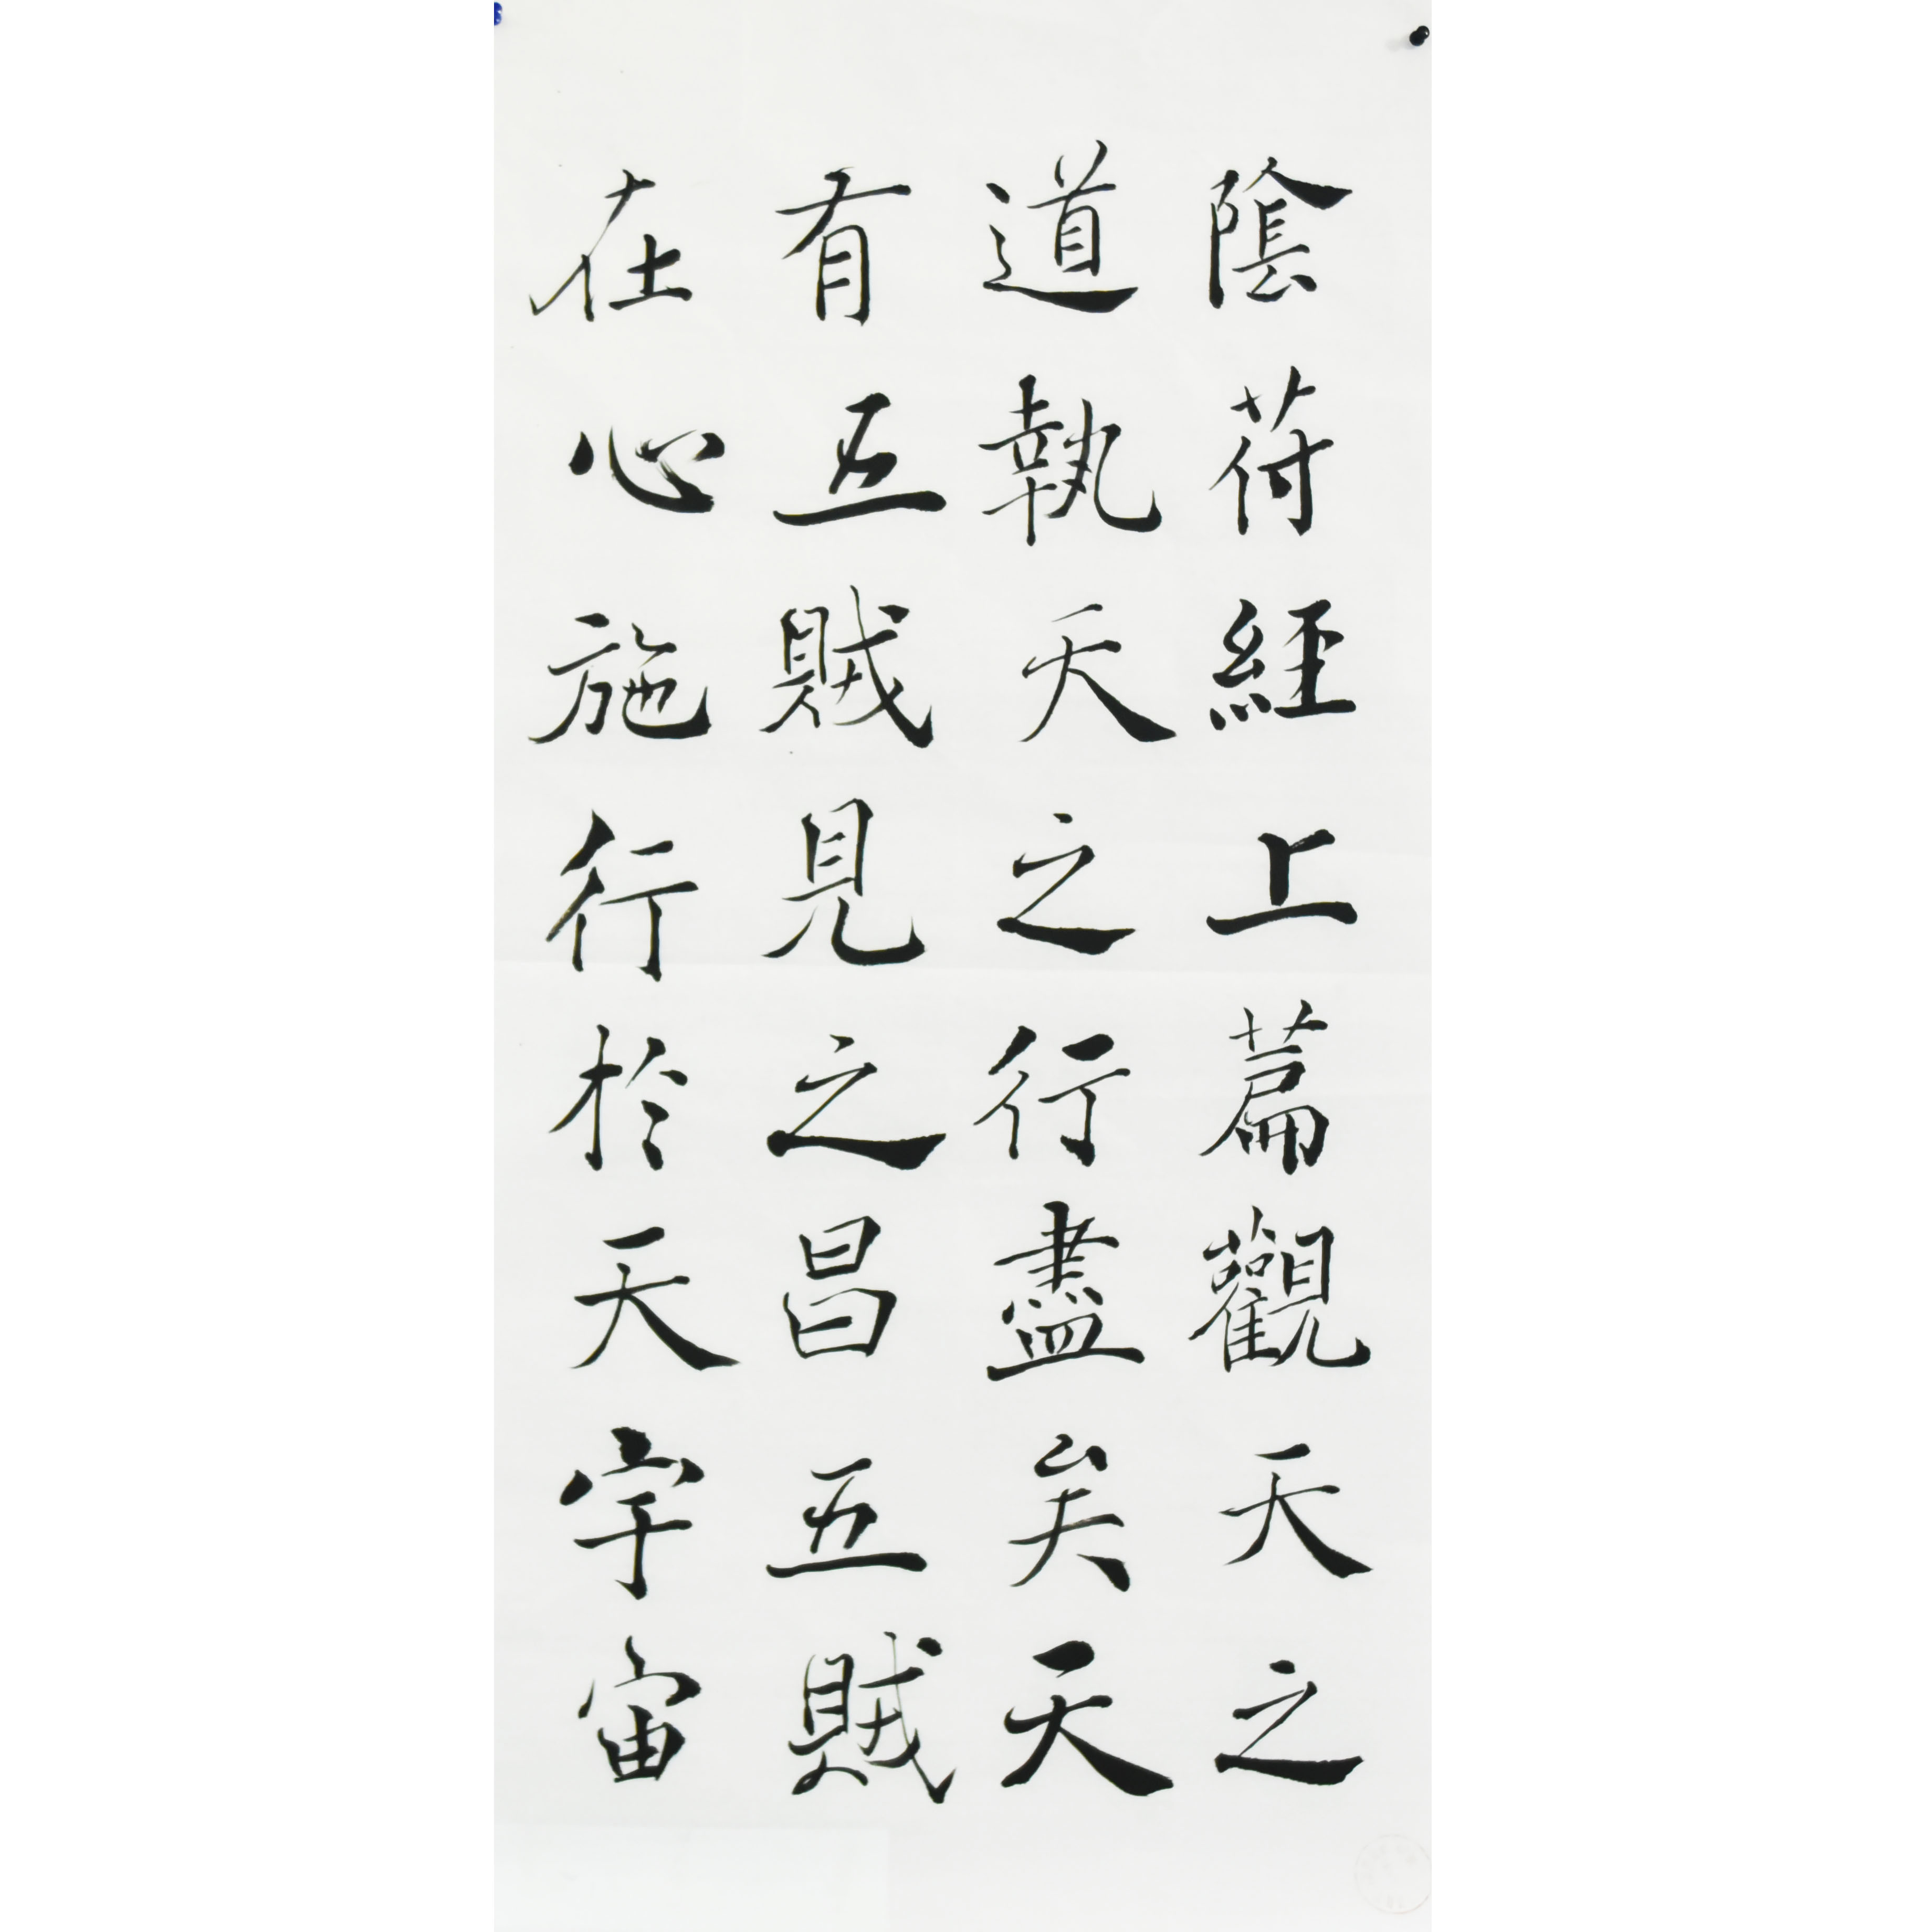 陰苻経上萹觀天之
道執天之行盡矣天
有五賊見之昌五賊
在心施行於天宇宙